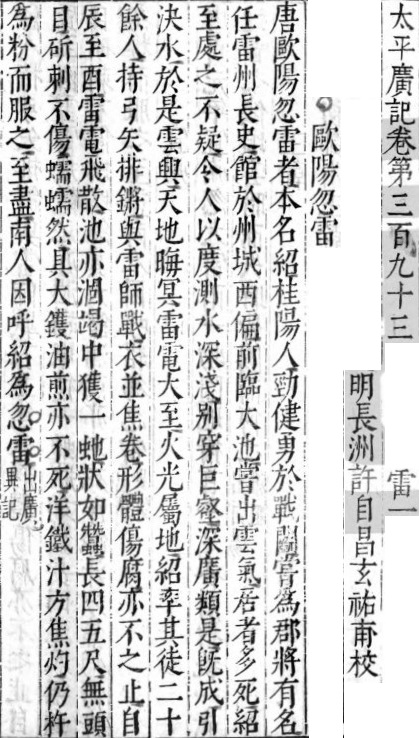 太平廣記卷第三百九十三 雷一
明長洲許自昌玄祐甫校
歐陽忽雷
唐歐陽忽雷者本名紹桂陽人勁健勇於戰鬬嘗為郡將有名
任雷州長史館於州城西偏前臨大池嘗出雲氣居者多死紹
至處之不疑令人以度測水深淺别穿巨壑深廣類是旣成引
決水於是雲興天地晦冥雷電大至火光屬地紹率其徒二十
餘人持弓矢排鏘與雷師戰衣並焦卷形體傷腐亦不之止自
辰至酉雷電飛散池亦涸竭中獲一虵狀如蠶長四五尺無頭
目斫刺不傷蠕蠕然具大鑊油煎亦不死洋鐵汁方焦灼仍杵
為粉而服之至盡南人因呼紹為忽雷出廣異記